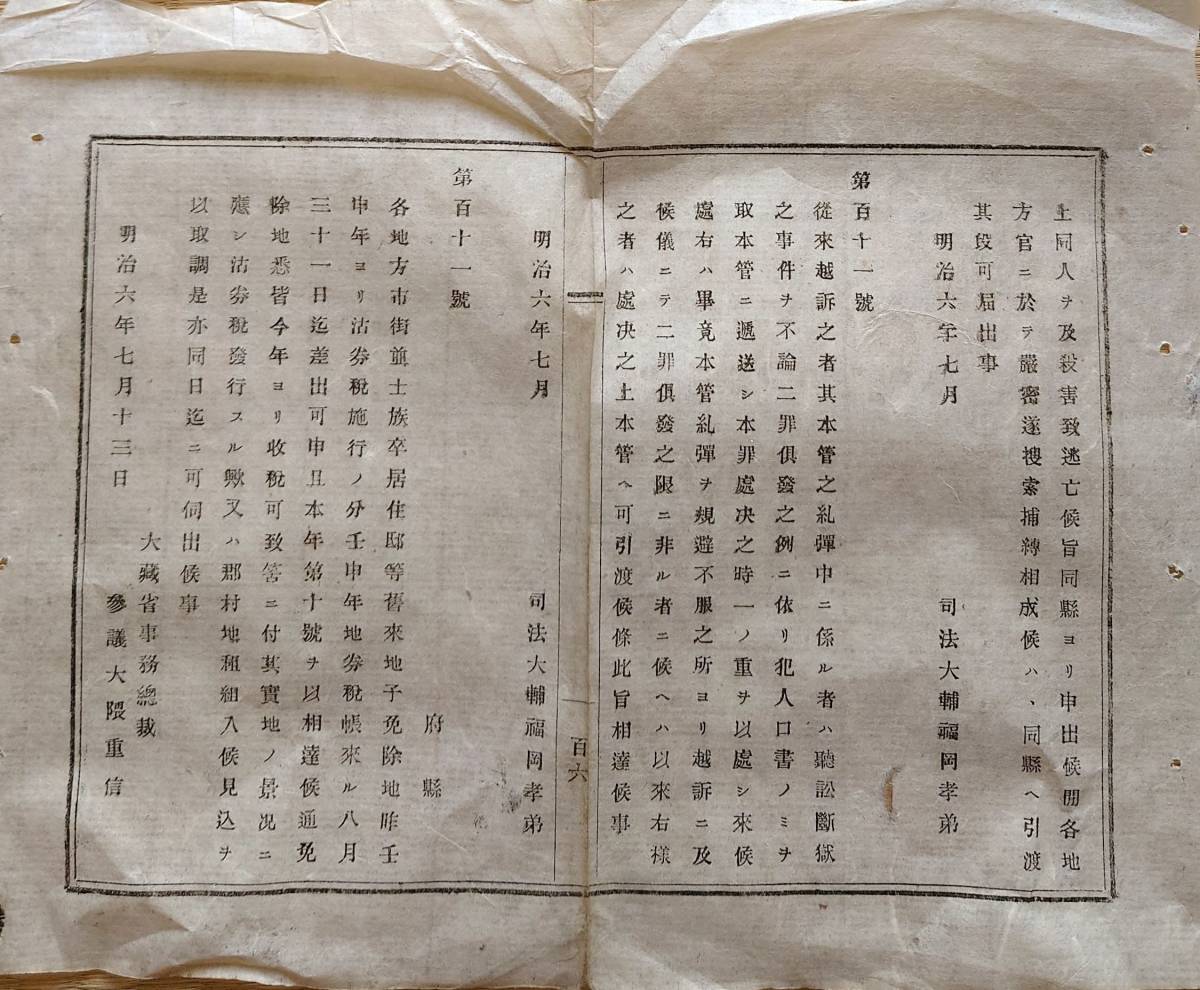 上同人ヲ及殺害致逃亡候旨同縣ヨリ申出候間各地
方官ニ於テ嚴密遂搜索捕縛相成候ハヽ同縣ヘ引渡
其段可屆出事
明治六年七月　司法大輔福岡孝弟
第百十一號
從來越訴之者其本管之糺彈中ニ係ル者ハ聽訟斷獄
之事件ヲ不論二罪俱發之例ニ依リ犯人口書ノミヲ
取本管ニ遞送シ本罪處决之時一ノ重ヲ以處シ來候
處右ハ畢竟本管糺彈ヲ規避不服之所ヨリ越訴ニ及
候儀ニテ二罪俱發之限ニ非ル者ニ候ヘハ以來右樣
之者ハ處决之上本管ヘ可引渡候條此旨相達候事
明治六年七月　司法大輔福岡孝弟
百六
第百十一號
府縣
各地方市街並士族卒居住邸等舊來地子免除地昨壬
申年ヨリ沽券稅施行ノ分壬申年地券稅帳來ル八月
三十一日迄差出可申且本年第十號ヲ以相達候通免
除地悉皆今年ヨリ收稅可致筈ニ付其實地ノ景况ニ
應シ沽券稅發行スル歟又ハ郡村地租組入候見込ヲ
以取調是亦同日迄ニ可伺出候事
大藏省事務總裁
明治六年七月十三日　參議大隈重信